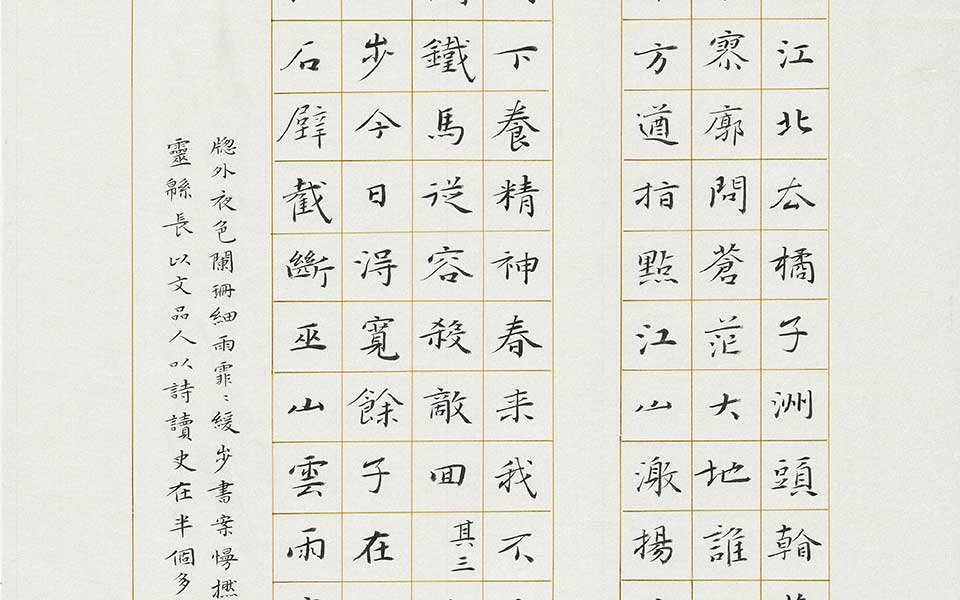 江北去橘子洲頭
寥廓問蒼茫大地誰
方遒指點江山激揚
下養精神春来我不
鐵馬從容殺敵回 其三
步今日得寬餘子在
石壁截斷巫山雲雨
牕外夜色闌珊細雨霏〻緩步書案慢撚
靈縣長以文品人以詩讀史在半個多